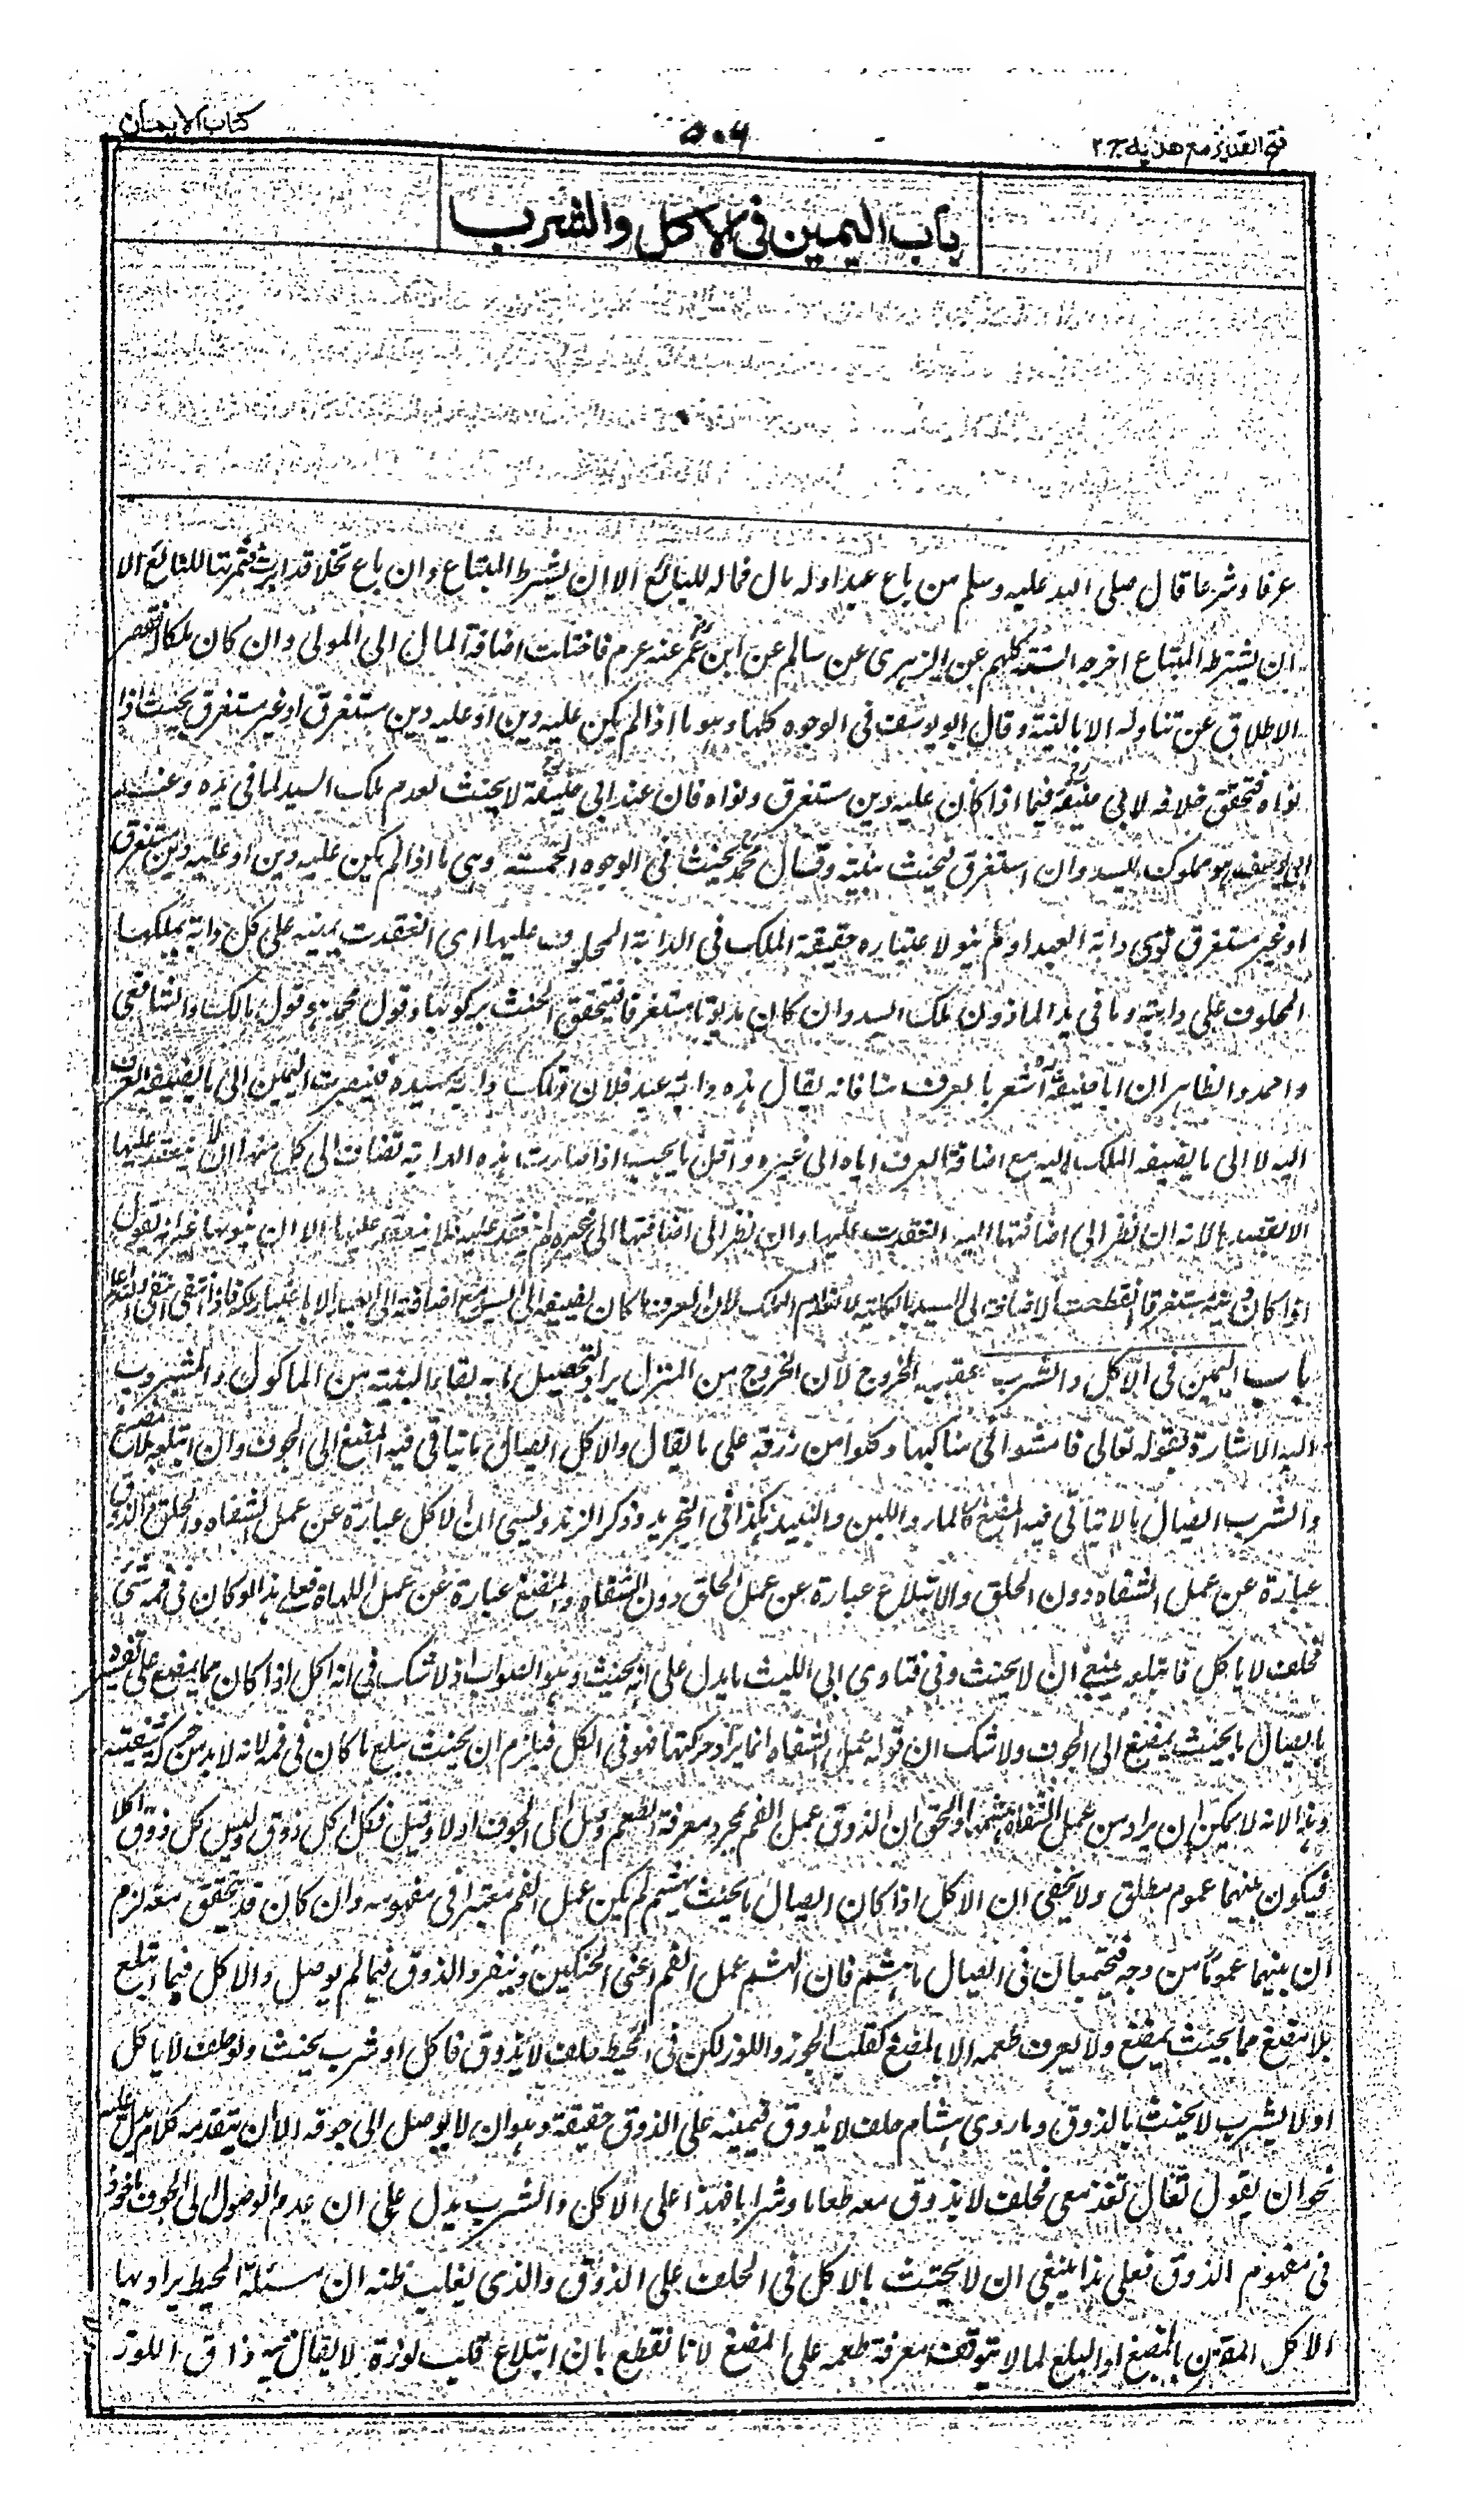 فتح القدیر مع هدایه ج ٢
٥٠٦
کتاب الایمان
باب الیمین فی الاکل والشرب
عرفا وشرعا قال صلی الله علیه وسلم من باع عبدا وله مال فماله للبائع الا ان یشترط المبتاع وان باع نخلا قد ابرت فثمرتها للبائع الا
ان یشترط المبتاع اخرجه الستة کلهم عن الزهری عن سالم عن ابن عمر عنه عرم فاختلت اضافة المال الی المولی وان کان ملکا له فقصر
الاطلاق عن تناوله الا بالنیة وقال ابو یوسف فی الوجوه کلها وهو ما اذا لم یکن علیه دین او علیه دین مستغرق او غیر مستغرق یحنث اذا
نواه فتحقق خلافه لابی حنیفة فیما اذا کان علیه دین مستغرق ونواه فان عند ابی حنیفة لا یحنث لعدم ملک السید لما فی یده وعند
ابی یوسف هو مملوک للسید وان استغرق فیحنث بنیته وقال محمد یحنث فی الوجوه الخمسة وهی ما اذا لم یکن علیه دین او علیه دین مستغرق
او غیر مستغرق نوی دابة العبد او لم ینو لاعتباره حقیقة الملک فی الدابة المحلوف علیها ای انعقدت یمینه علی کل دابة یملکها
المحلوف علی دابته وما فی ید الماذون ملک السید وان کان مدیونا مستغرقا فیتحقق الحنث برکوبها وقول محمد هو قول مالک والشافعی
واحمد والظاهر ان ابا حنیفة اشعر بالعرف هنا فانه یقال هذه دابة عبد فلان وتلک دابة سیده فینصرف الیمین الی ما یضیفه العرف
الیه لا الی ما یضیفه الملک الیه مع اضافة العرف ایاه الی غیره واقل ما یجب اذا صارت هذه الدابة تضاف الی کل منهما ان لا ینعقد علیها
الا بقصدها لانه ان نظر الی اضافتها الیه انعقدت علیها وان نظر الی اضافتها الی غیره لم ینعقد علیها الا ان ینویها غیر انه یقول
اذا کان دینه مستغرقا انقطعت الاضافة الی السید بالکلیة لانعدام الملک لان العرف ما کان یضیفه الی السید مع اضافته الی العبد الا باعتبار ملکه فاذا انتفی
باب الیمین فی الاکل والشرب یعقب الخروج لان الخروج من المنزل یراد لتحصیل ما به بقاء البنیة من الماکول والمشروب
الیه الاشارة بقوله تعالی فامشوا فی مناکبها وکلوا من رزقه علی ما یقال والاکل ایصال ما یتاتی فیه المضغ الی الجوف وان ابتلعه بلا مضغ
والشرب ایصال ما لا یتاتی فیه المضغ کالماء واللبن والنبیذ هکذا فی التجرید وذکر الزندویسی ان الاکل عبارة عن عمل الشفاه والحلق والذوق
عبارة عن عمل الشفاه دون الحلق والابتلاع عبارة عن عمل الحلق دون الشفاه والمضغ عبارة عن عمل اللهاة فعلی هذا لو کان فی فمه شئ
فحلف لا یاکل فابتلعه ینبغی ان لا یحنث وفی فتاوی ابی اللیث ما یدل علی انه یحنث وهو الصواب اذ لا شک فی انه اکل اذا کان مما یمضغ علی تفسیره
بایصال ما یحنث یمضغ الی الجوف ولا شک ان قوله عمل الشفاه انما یراد حرکتها فهو فی الکل فیلزم ان یحنث ببلع ما کان فی فمه لانه لا بد من حرکة شفتیه
وهذا لانه لا یمکن ان یراد من عمل الشفاه هشمها والحق ان الذوق عمل الفم لمجرد معرفة الطعم وصل الی الجوف اولا وقیل فکل اکل ذوق ولیس کل ذوق اکلا
فیکون بینهما عموم مطلق ولا یخفی ان الاکل اذا کان ایصال ما یحنث یهشم لم یکن عمل الفم معتبرا فی مفهومه وان کان قد یتحقق معه لزم
ان بینهما عموما من وجه فیجتمعان فی ایصال ما هشم فان الهشم عمل الفم اعنی الحنکین وینفرد الذوق فیما لم یوصل والاکل فیما ابتلع
بلا مضغ مما یحنث یمضغ ولا یعرف طعمه الا بالمضغ کقلب الجوز واللوز لکن فی المحیط حلف لا یذوق فاکل او شرب یحنث ولو حلف لا یاکل
او لا یشرب لا یحنث بالذوق وما روی هشام حلف لا یذوق فیمینه علی الذوق حقیقة وهو ان لا یوصل الی جوفه الا ان یتقدمه کلام یدل علیه
نحو ان یقول تعال تغد معی فحلف لا یذوق معه طعاما وشرابا فهذا علی الاکل والشرب یدل علی ان عدم الوصول الی الجوف ماخوذ
فی مفهوم الذوق فعلی هذا ینبغی ان لا یحنث بالاکل فی الحلف علی الذوق والذی یغلب ظنه ان مسئلة المحیط یراد بها
الاکل المقترن بالمضغ او البلع لما لا یتوقف معرفة طعمه علی المضغ لانا نقطع بان ابتلاع قلب لوزة لا یقال فیه ذاق اللوز